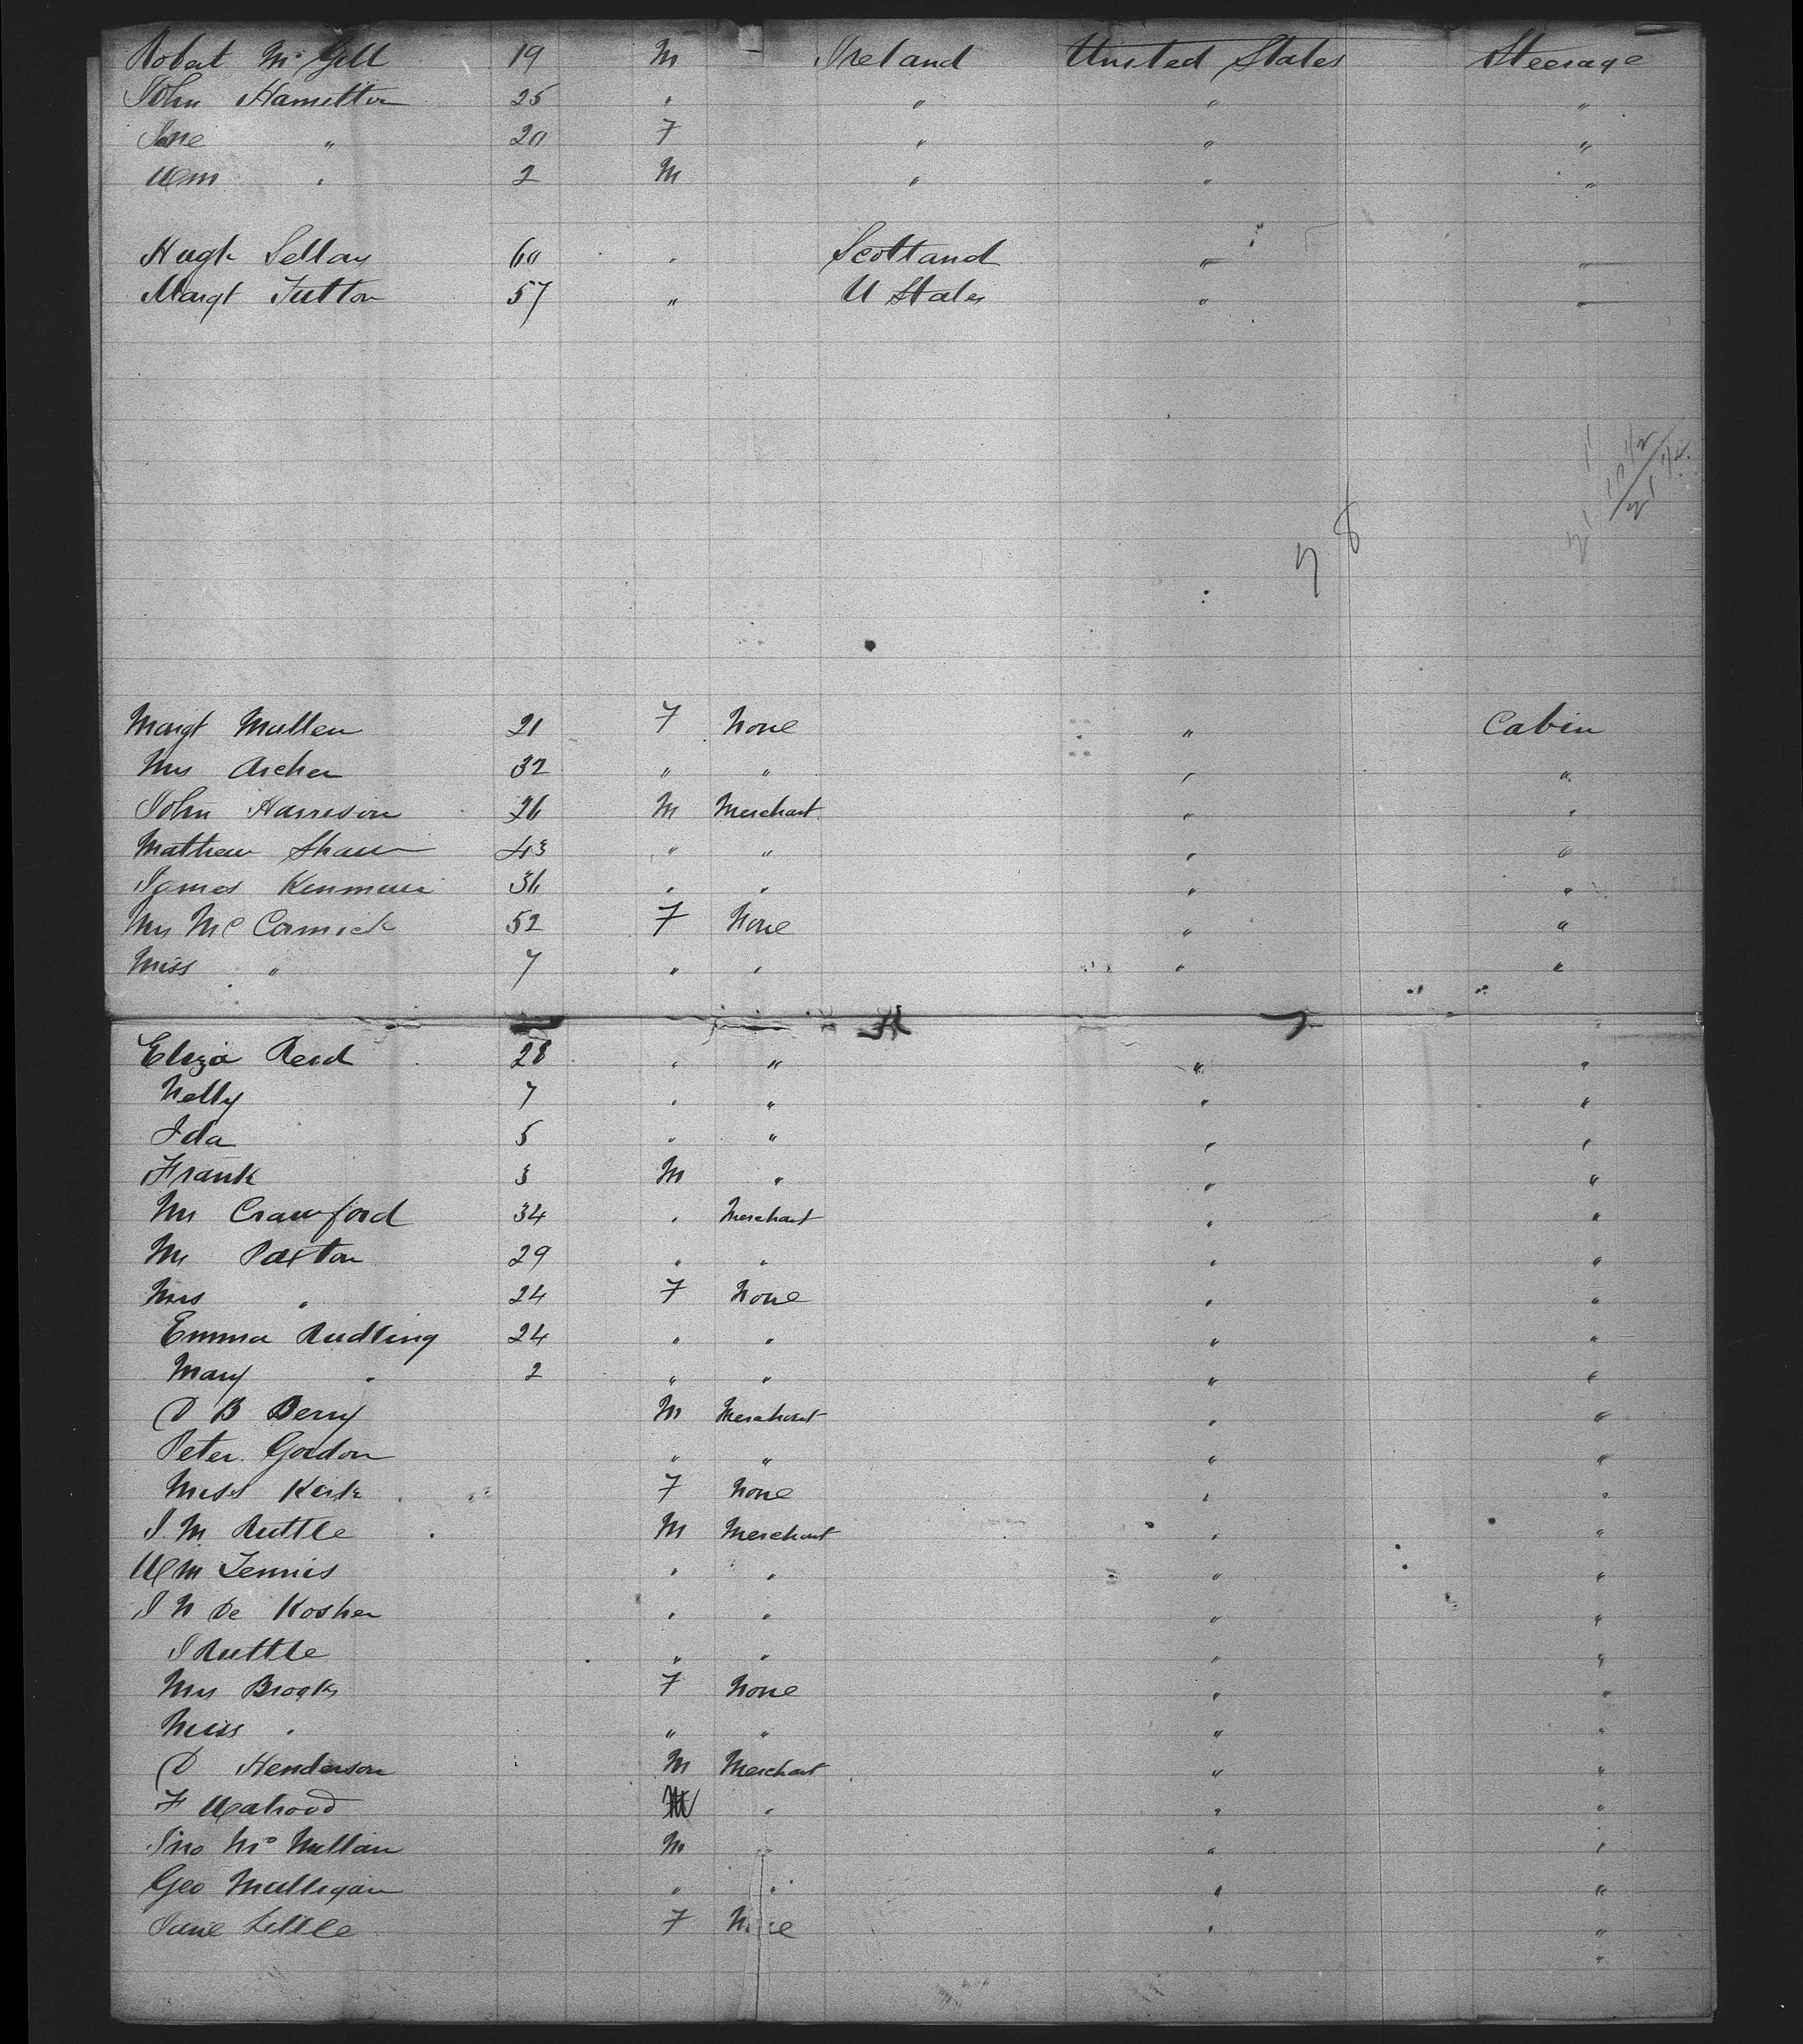 Robert McGill 19 M Ireland United States Steerage
John Hamilton 25 " " " "
Jane " 20 F " " "
Wm " 2 M " " "
Hugh Sellars 60 " Scotland " "
Margt Tutton 57 " U States " "
78
Margt Mullen 21 F None " Cabin
Mrs Archer 32 " " " "
John Harrison 26 M Merchant " "
Mathew Shaw 43 " " " "
James Kenmuir 36 " " " "
Mrs McCormick 52 F None " "
Miss " 7 " " " "
Eliza Reid 28 " " " "
Nelly 7 " " " "
Ida 5 " " " "
Frank 3 M " " "
Mr Crawford 34 " Merchant " "
Mr Paxton 29 " " " "
Mrs " 24 F None " "
Emma Rudling 24 " " " "
Mary " 2 " " " "
D B Berry M Merchant " "
Peter Gordon " " " "
Miss Kirk F None " "
J. M Ruttle M Merchant " "
Wm Tennis " " " "
J N De Kosher " " " "
J Ruttle " " " "
Mrs Brooks F None " "
Miss " " " " "
D Henderson M Merchant " "
F M " " "
Jno Mc Mullan M " " "
Geo Mulligan " " " "
Jane Little F None " "
"